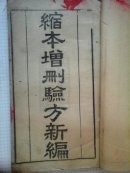 縮本增刪驗方新編